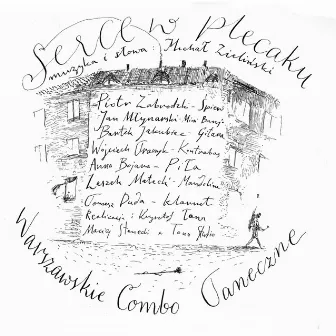 Serce w plecaku
muzyka i słowa: Michał Zieliński
Piotr Zabrodzki - Śpiew
Jan Młynarski - Mini Banjo
Bartek Jakubiec - Gitara
Wojciech Traczyk - Kontrabas
Anna Bojara - Piła
Leszek Matecki - Mandolina
Tomasz Duda - Klarnet
Realizacja: Krzysztof Tonn
Maciej Stanecki z Tonn Studio
Warszawskie Combo Taneczne